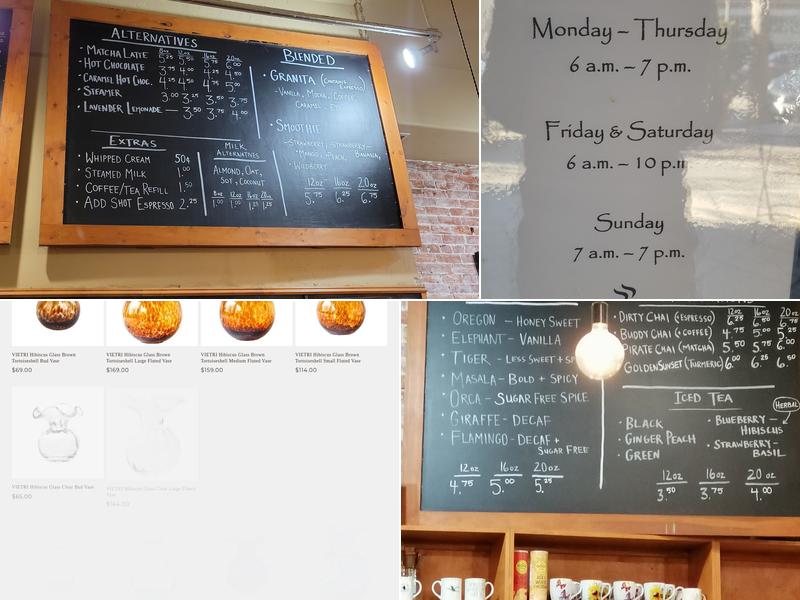 ALTERNATIVES
8oz 12oz 16oz 20oz
• MATCHA LATTE 5.25 5.50 5.75 6.00
• HOT CHOCOLATE 3.75 4.00 4.25 4.50
• CARAMEL HOT CHOC. 4.25 4.50 4.75 5.00
• STEAMER 3.00 3.25 3.50 3.75
• LAVENDER LEMONADE — 3.50 3.75 4.00
EXTRAS
• WHIPPED CREAM 50¢
• STEAMED MILK 1.00
• COFFEE/TEA REFILL 1.50
• ADD SHOT ESPRESSO 2.25
MILK
ALTERNATIVES
ALMOND, OAT,
SOY, COCONUT
8oz 12oz 16oz 20oz
1.00 1.00 1.25 1.25
BLENDED
• GRANITA (CONTAINS
ESPRESSO)
- VANILLA, MOCHA, COFFEE,
CARAMEL - ETC
• SMOOTHIE
- STRAWBERRY, STRAWBERRY-
BANANA,
MANGO, PEACH,
WILDBERRY
12oz 16oz 20oz
5.75 6.25 6.75
Monday – Thursday
6 a.m. – 7 p.m.
Friday & Saturday
6 a.m. – 10 p.m.
Sunday
7 a.m. – 7 p.m.
VIETRI Hibiscus Glass Brown
Tortoiseshell Bud Vase
$69.00
VIETRI Hibiscus Glass Brown
Tortoiseshell Large Fluted Vase
$169.00
VIETRI Hibiscus Glass Brown
Tortoiseshell Medium Fluted Vase
$159.00
VIETRI Hibiscus Glass Brown
Tortoiseshell Small Fluted Vase
$114.00
VIETRI Hibiscus Glass Clear Bud Vase
$65.00
VIETRI Hibiscus Glass Clear Large Fluted
Vase
$164.00
• OREGON – HONEY SWEET
• ELEPHANT – VANILLA
• TIGER – LESS SWEET + SP
• MASALA – BOLD + SPICY
• ORCA – SUGAR FREE SPICE
• GIRAFFE – DECAF
• FLAMINGO – DECAF +
SUGAR FREE
12oz 16oz 20oz
4.75 5.00 5.25
12oz 16oz 20oz
• DIRTY CHAI (+ESPRESSO) 6.25 6.50 6.75
• BUDDY CHAI (+COFFEE) 4.75 5.00 5.25
PIRATE CHAI (MATCHA) 5.50 5.75 6.00
GOLDEN SUNSET (TURMERIC) 6.00 6.25 6.50
ICED TEA
HERBAL
• BLACK
• GINGER PEACH
• GREEN
• BLUEBERRY –
HIBISCUS
• STRAWBERRY –
BASIL
12oz 16oz 20oz
3.50 3.75 4.00